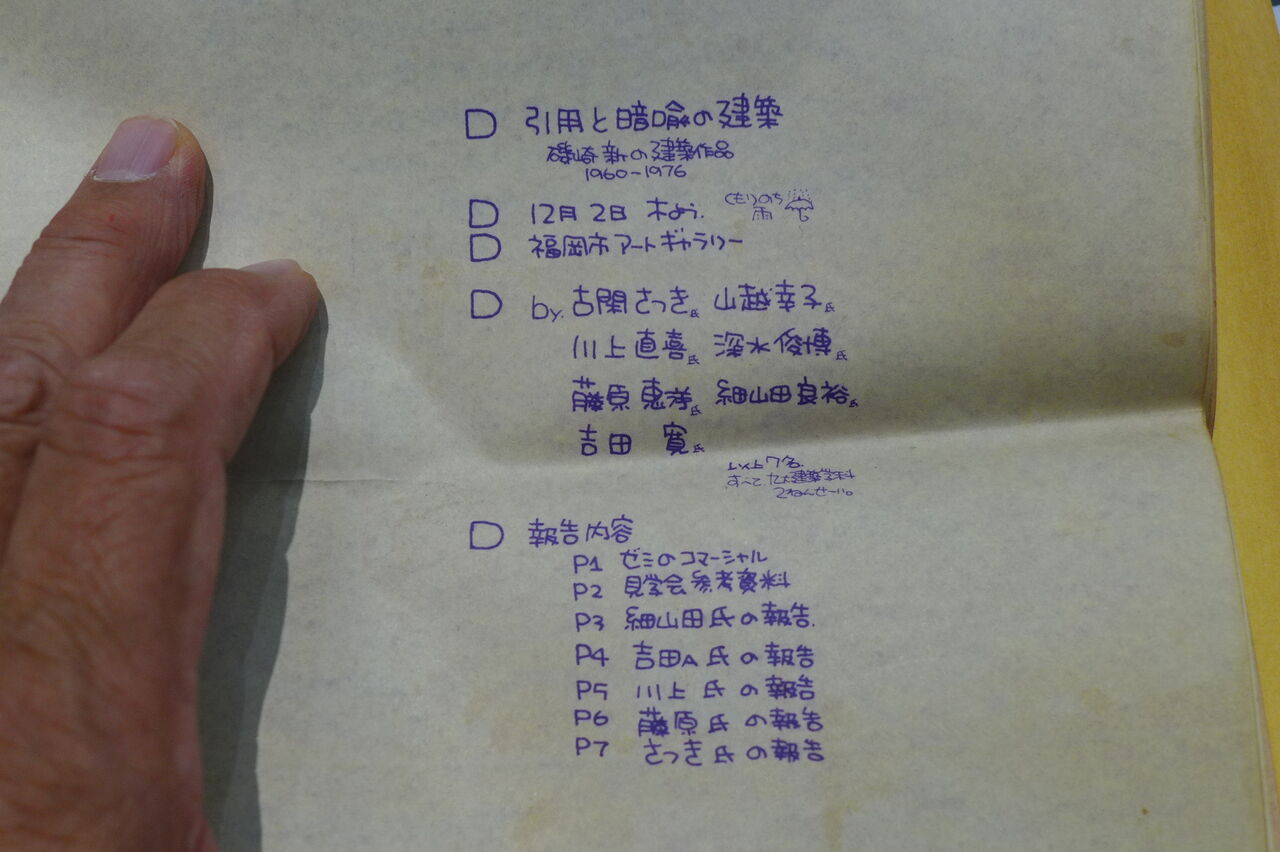 D 引用と暗喩の建築
磯崎新の建築作品
1960-1976
D 12月2日 木よう. くもりのち
雨
D 福岡市アートギャラリー
D by. 古閑さつき氏 山越幸子氏
川上直喜氏 深水俊博氏
藤原恵洋氏 細山田良裕氏
吉田 寛氏
以上7名.
すべて.九大建築学科
2ねんせーい。
D 報告内容
P1 ゼミのコマーシャル
P2 見学会参考資料
P3 細山田氏の報告.
P4 吉田A氏の報告
P5 川上氏の報告
P6 藤原氏の報告
P7 さつき氏の報告